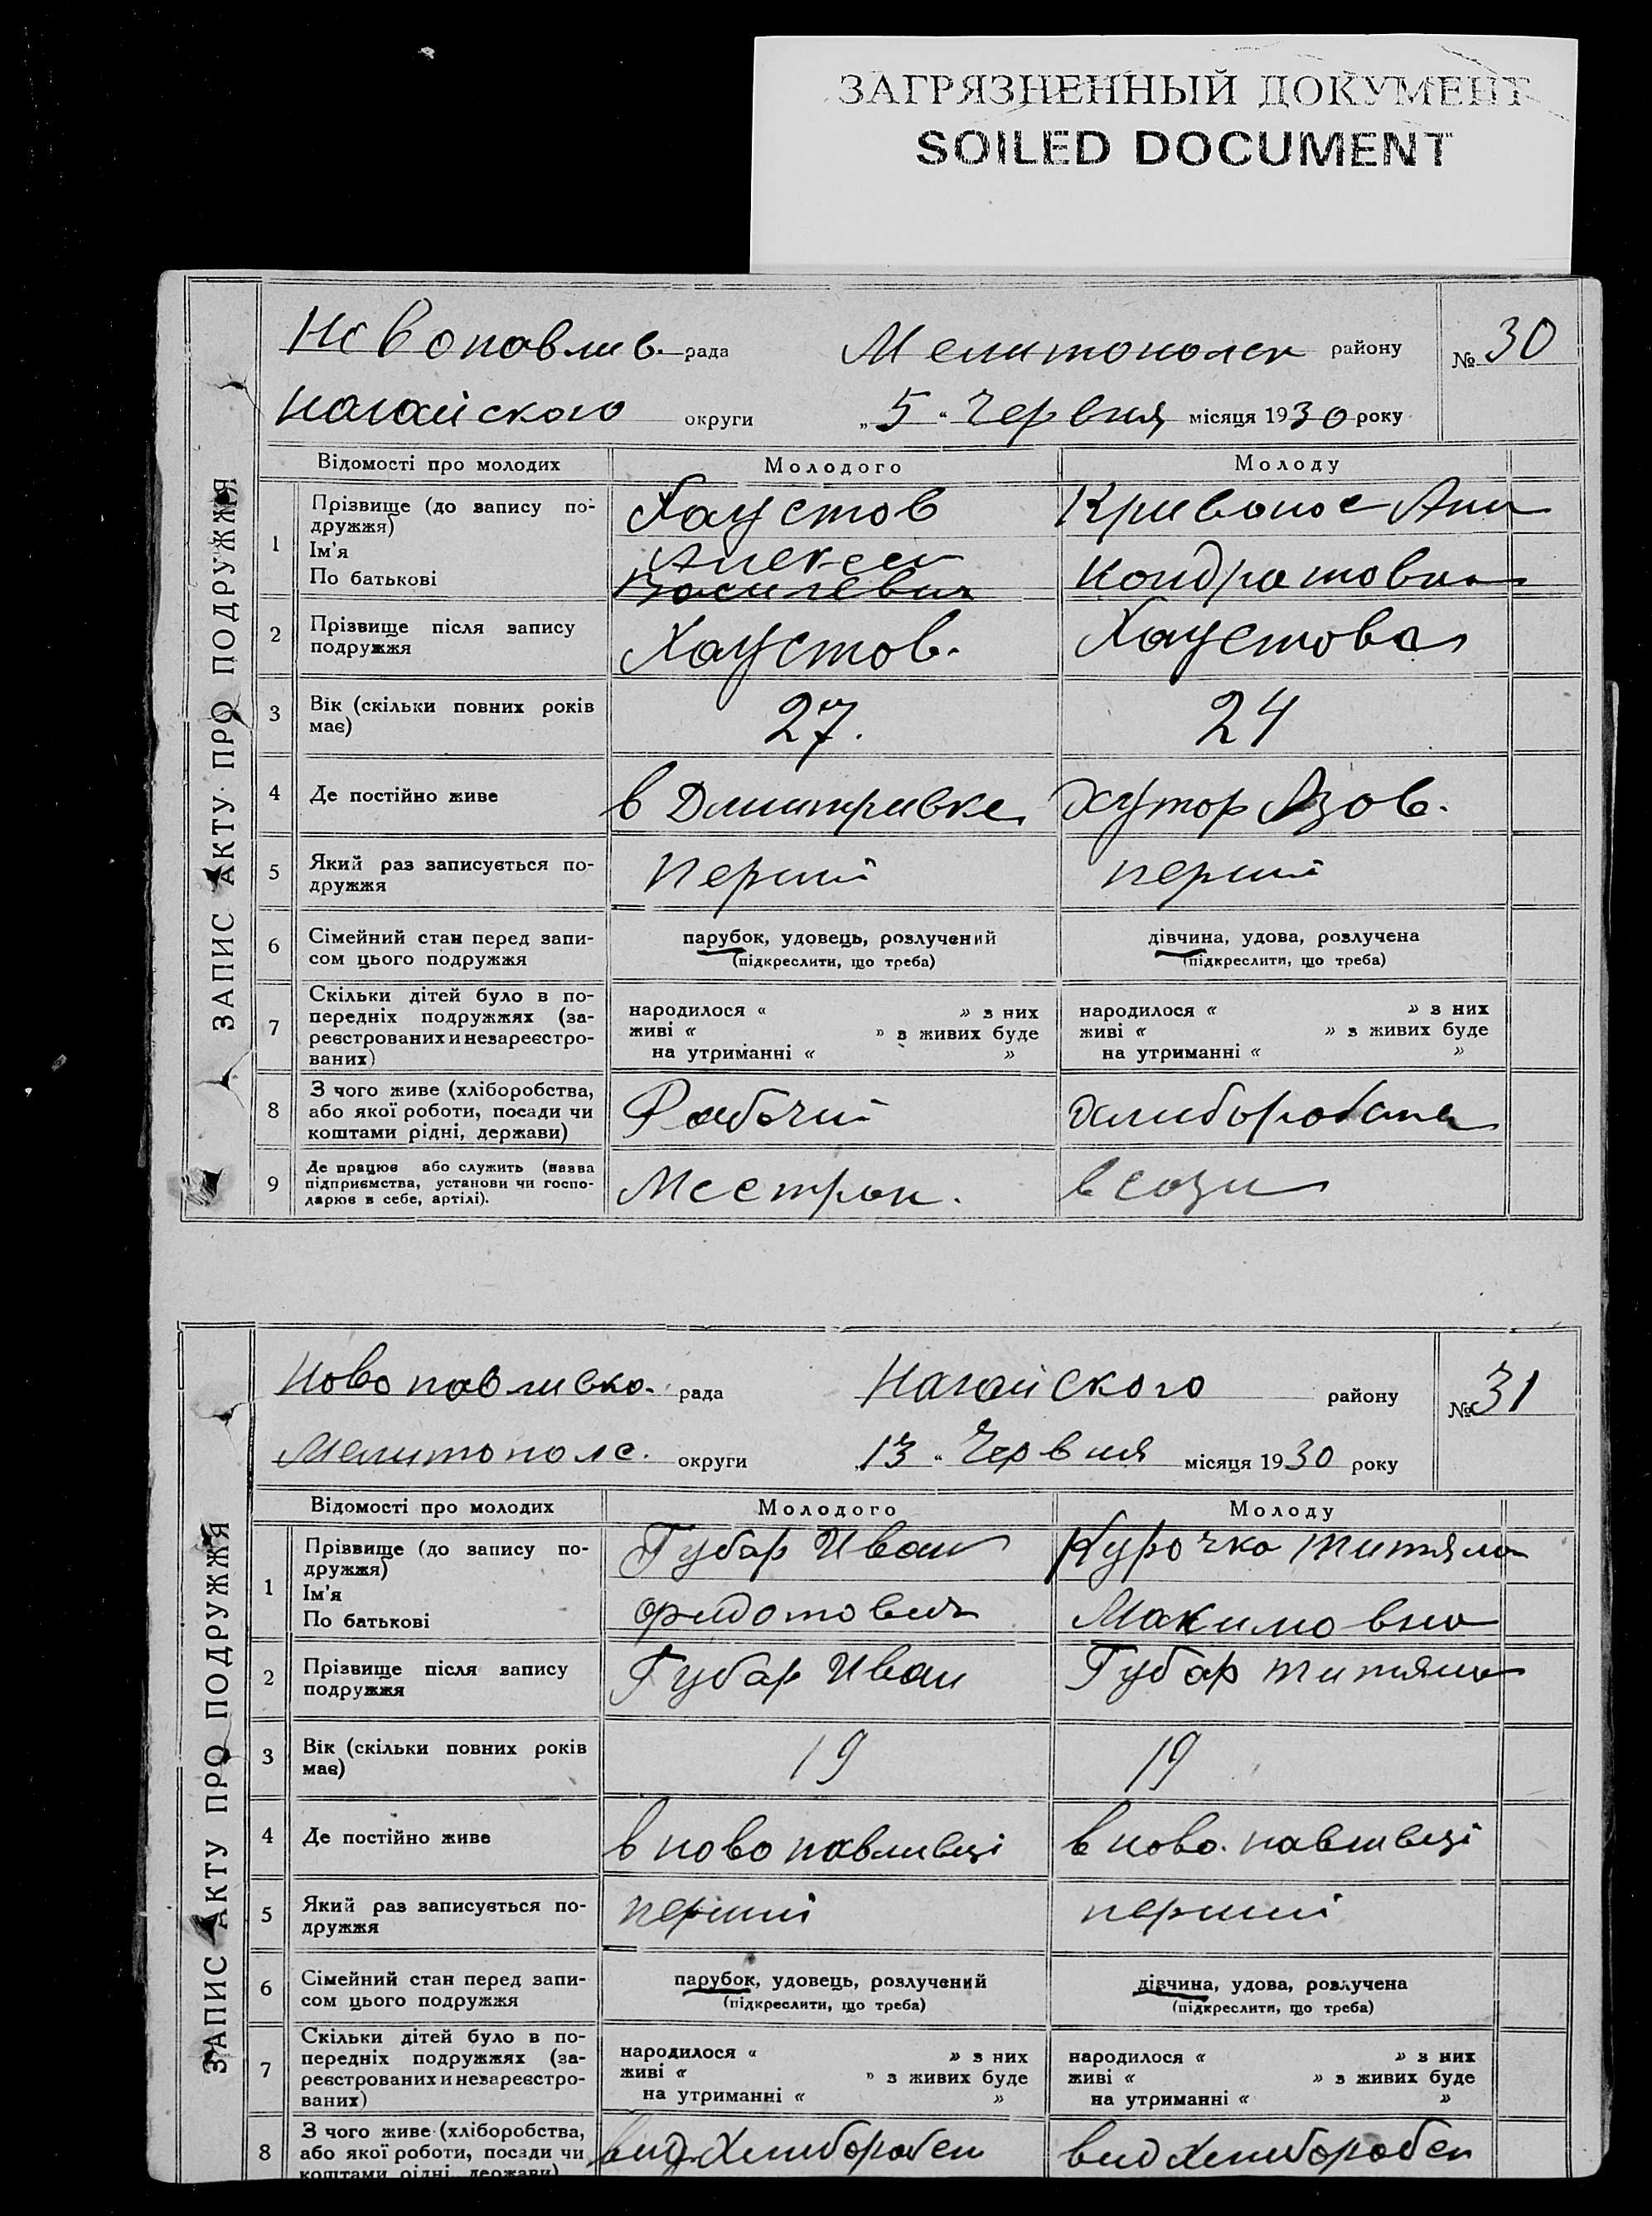 ЗАГРЯЗНЕННЫЙ ДОКУМЕНТ
SOILED DOCUMENT
ЗАПИС АКТУ ПРО ПОДРУЖЖЯ
Новопавлив. рада Мелитополск району № 30
Нагайского округи „5“ Червня місяця 1930 року
Відомості про молодих Молодого Молоду
1 Прізвище (до запису по-дружжя) Хаустов Кривонос Ани
Ім'я Алексей
По батькові Василевич Кондратовна
2 Прізвище після запису подружжя Хаустов. Хаустова
3 Вік (скільки повних років має) 27. 24
4 Де постійно живе в Дмитривке Хутор Азов.
5 Який раз записується по-дружжя перший перший
6 Сімейний стан перед запи-сом цього подружжя парубок, удовець, розлучений (підкреслити, що треба) дівчина, удова, розлучена (підкреслити, що треба)
7 Скільки дітей було в по-передніх подружжях (за-реєстрованих и незареєстро-ваних) народилося « » з них живі « » з живих буде на утриманні « » народилося « » з них живі « » з живих буде на утриманні « »
8 З чого живе (хліборобства, або якої роботи, посади чи коштами рідні, держави) Рабочий
9 Де працює або служить (назва підприємства, установи чи госпо-дарює в себе, артілі). в сози
ЗАПИС АКТУ ПРО ПОДРУЖЖЯ
Новопавливко. рада Нагайского району № 31
Мелитополс. округи „13“ Червня місяця 1930 року
Відомості про молодих Молодого Молоду
1 Прізвище (до запису по-дружжя) Губар Иван Курочка Титяна
Ім'я
По батькові Фидотович Макимовна
2 Прізвище після запису подружжя Губар Иван Губар Титяна
3 Вік (скільки повних років має) 19 19
4 Де постійно живе в ново павливці в ново. павливці
5 Який раз записується по-дружжя перший перший
6 Сімейний стан перед запи-сом цього подружжя парубок, удовець, розлучений (підкреслити, що треба) дівчина, удова, розлучена (підкреслити, що треба)
7 Скільки дітей було в по-передніх подружжях (за-реєстрованих и незареєстро-ваних) народилося « » з них живі « » з живих буде на утриманні « » народилося « » з них живі « » з живих буде на утриманні « »
8 З чого живе (хліборобства, або якої роботи, посади чи коштами рідні, держави) вид Хлиборобсн вид Хлиборобсн